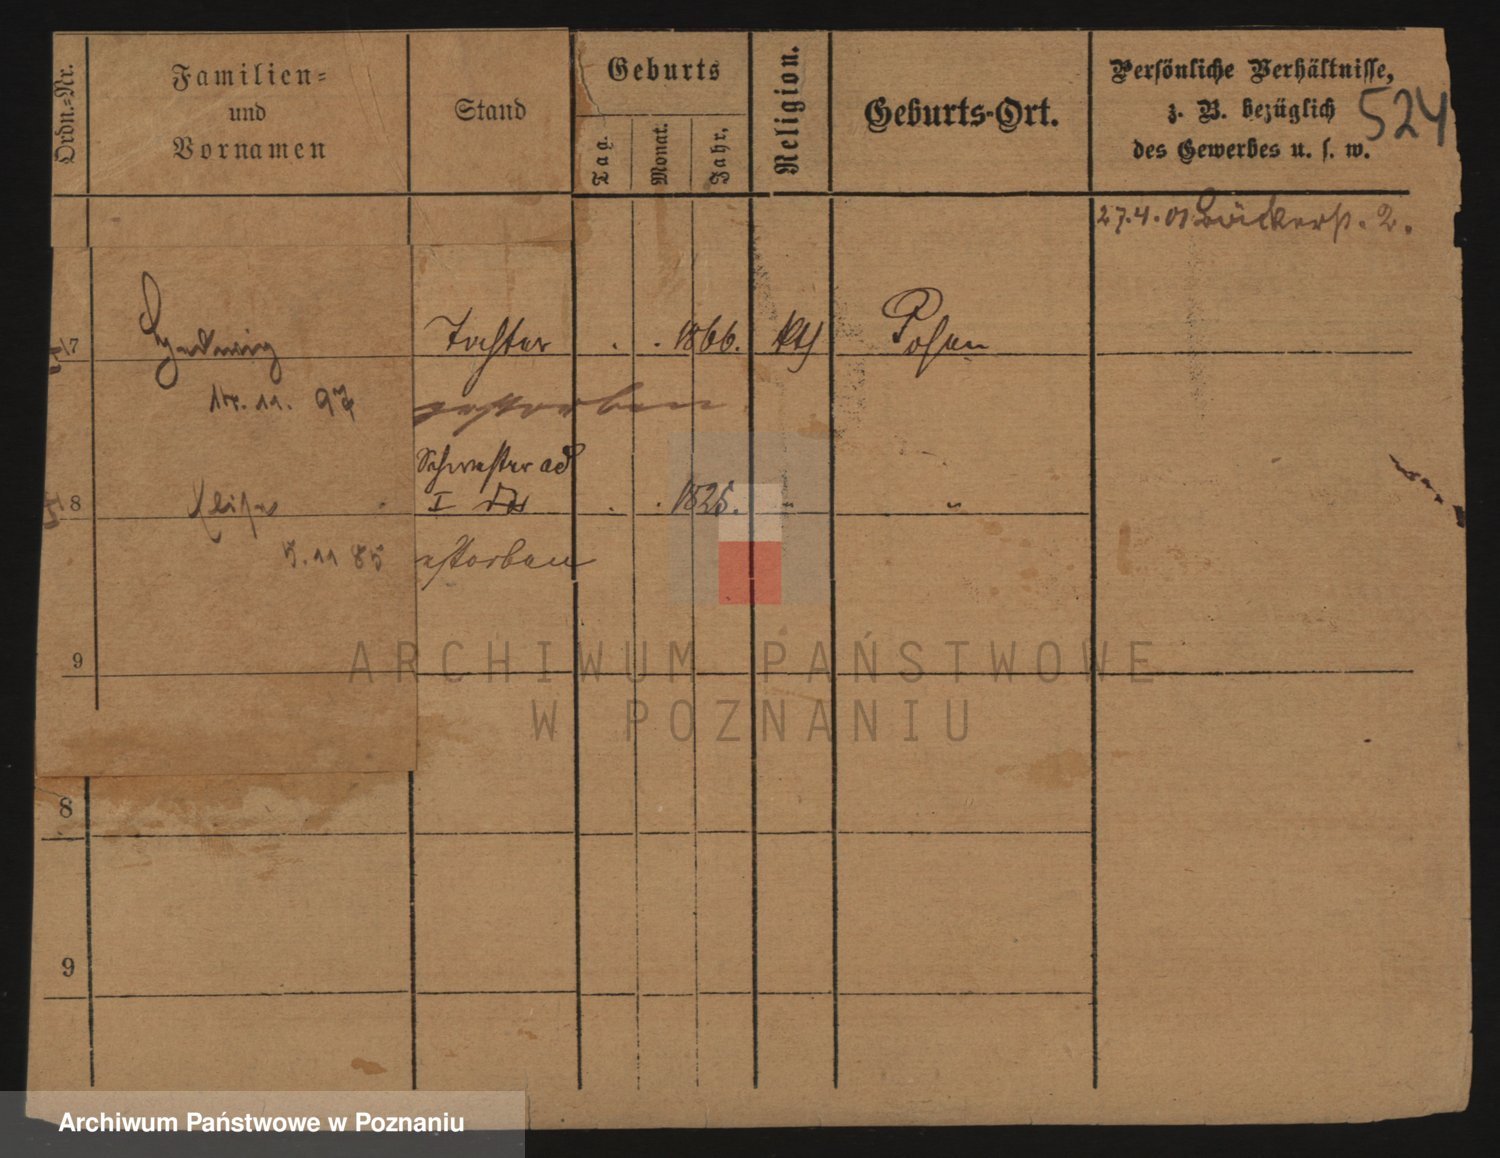 Ordn.-Nr.
Familien-
und
Vornamen
Stand
Geburts
Tag.
Monat.
Jahr.
Religion.
Geburts-Ort.
Persönliche Verhältnisse,
z. B. bezüglich
des Gewerbes u. s. w.
524
27.4.01 Bäckerstr. 2.
7
Hedwig
Tochter
. . 1866.
kth
Posen
11. 97
gestorben
Schwester ad
8
I
. . 1825.
"
"
5. 11 85
estorben
9
8
9
ARCHIWUM PAŃSTWOWE
W POZNANIU
Archiwum Państwowe w Poznaniu